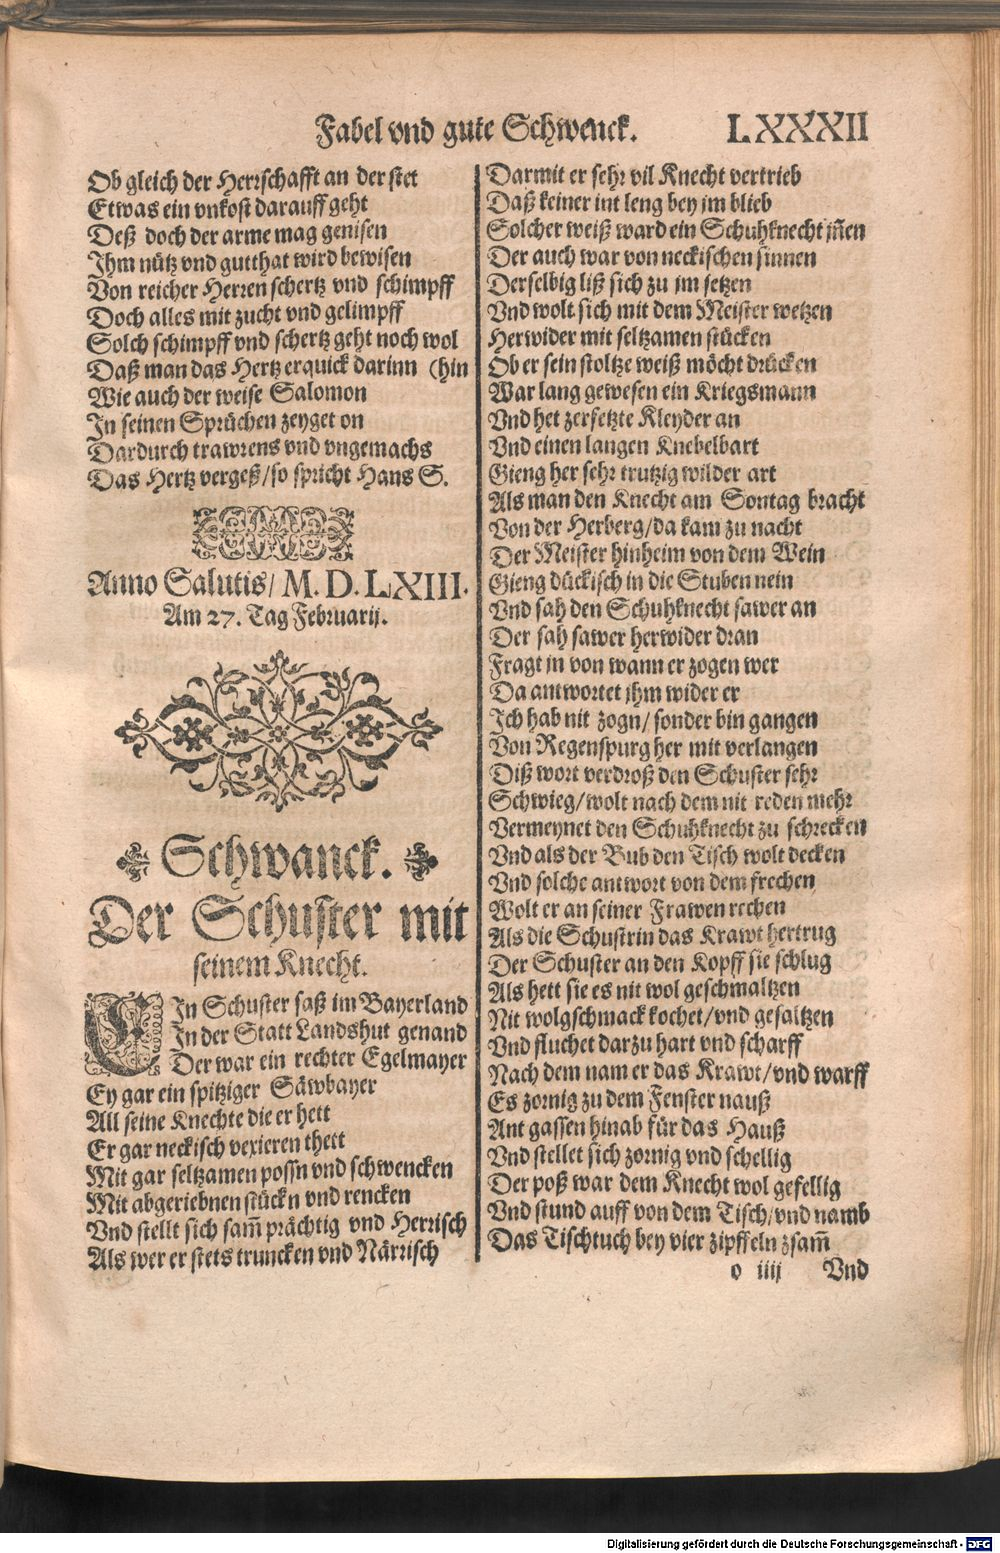 Fabel vnd gute Schwenck. LXXXII
Ob gleich der Herrschafft an der stet
Etwas ein vnkost darauff geht
Deß doch der arme mag genisen
Ihm nütz vnd gutthat wird bewisen
Von reicher Herren schertz vnd schimpff
Doch alles mit zucht vnd gelimpff
Solch schimpff vnd schertz geht noch wol
Daß man das Hertz erquick darinn (hin
Wie auch der weise Salomon
In seinen Sprüchen zeyget on
Dardurch trawrens vnd vngemachs
Das Hertz vergeß/so spricht Hans S.
Anno Salutis/ M. D. LXIII.
Am 27. Tag Februarij.
Schwanck.
Der Schuster mit
seinem Knecht.
EIn Schuster saß im Bayerland
In der Statt Landshut genand
Der war ein rechter Egelmayer
Ey gar ein spitziger Säwbayer
All seine Knechte die er hett
Er gar neckisch vexieren thett
Mit gar seltzamen possn vnd schwencken
Mit abgeriebnen stückn vnd rencken
Vnd stellt sich sam̃ prächtig vnd Herrisch
Als wer er stets truncken vnd Närrisch
Darmit er sehr vil Knecht vertrieb
Daß keiner int leng bey im blieb
Solcher weiß ward ein Schuhknecht jñen
Der auch war von neckischen sinnen
Derselbig liß sich zu im setzen
Vnd wolt sich mit dem Meister wetzen
Herwider mit seltzamen stücken
Ob er sein stoltze weiß möcht drücken
War lang gewesen ein Kriegsmann
Vnd het zerfetzte Kleyder an
Vnd einen langen Knebelbart
Gieng her sehr trutzig wilder art
Als man den Knecht am Sontag bracht
Von der Herberg/da kam zu nacht
Der Meister hinheim von dem Wein
Gieng dückisch in die Stuben nein
Vnd sah den Schuhknecht sawer an
Der sah sawer herwider dran
Fragt in von wann er zogen wer
Da antwortet ihm wider er
Ich hab nit zogn/ sonder bin gangen
Von Regenspurg her mit verlangen
Diß wort verdroß den Schuster sehr
Schwieg/wolt nach dem nit reden mehr
Vermeynet den Schuhknecht zu schrecken
Vnd als der Bub den Tisch wolt decken
Vnd solche antwort von dem frechen
Wolt er an seiner Frawen rechen
Als die Schustrin das Krawt hertrug
Der Schuster an den Kopff sie schlug
Als hett sie es nit wol geschmaltzen
Nit wolgschmack kochet/vnd gesaltzen
Vnd fluchet darzu hart vnd scharff
Nach dem nam er das Krawt/vnd warff
Es zornig zu dem Fenster nauß
Ant gassen hinab für das Hauß
Vnd stellet sich zornig vnd schellig
Der poß war dem Knecht wol gefellig
Vnd stund auff von dem Tisch/vnd namb
Das Tischtuch bey vier zipffeln zsam̃
o iiij Vnd
Digitalisierung gefördert durch die Deutsche Forschungsgemeinschaft - DFG